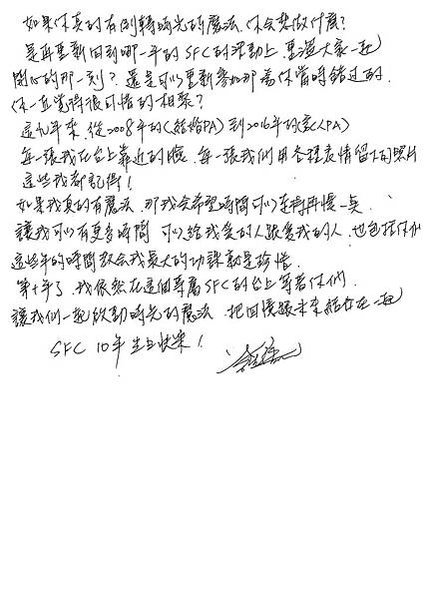 如果你真的有倒轉時光的魔法，你會想做什麼？
是再重新回到哪一年的SFC的活動上，重溫大家一起
開心的那一刻？還是可以重新參加那需你當時錯過的，
你一直覺得很可惜的相聚？
這九年來，從2008年的(結婚PA)到2016年的(家人PA)
每一張我在台上靠近的臉，每一張我們用各種表情留下的照片
這些我都記得！
如果我真的有魔法，那我會希望時間可以走得再慢一點，
讓我可以有更多時間，可以給我愛的人跟愛我的人，也包括你們
這些年的時間教會我最大的功課就是珍惜，
第十年了，我依然在這個專屬SFC的台上等著你們，
讓我們一起啟動時光的魔法，把回憶跟未來結合在一起
SFC 10年 生日快樂！